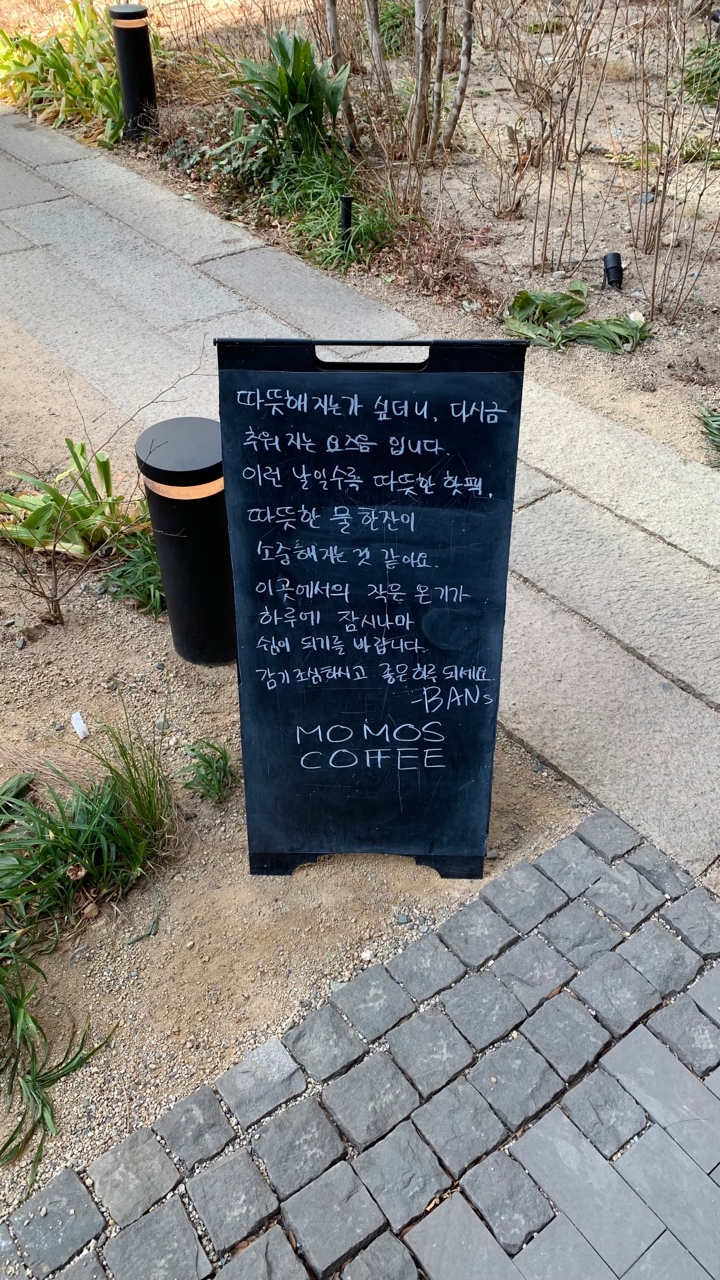 따뜻해지는가 싶더니, 다시금
추워지는 요즈음 입니다.
이런 날일수록 따뜻한 핫팩,
따뜻한 물 한잔이
소중해지는 것 같아요.
이곳에서의 작은 온기가
하루에 잠시나마
쉼이 되기를 바랍니다.
감기조심하시고 좋은하루 되세요.
-BANs
MOMOS
COFFEE